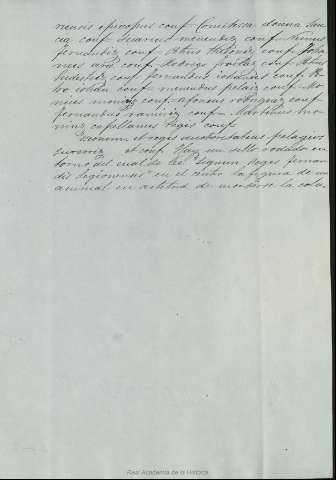 nensis episcopus conf. Comitessa donna San
cia conf. Suarius menendiz conf. Nunus
fernandiz conf. Petrus conf. Joha
nes conf. Petrus
conf. fernandus iohanis conf. Pe
tro iohan conf. menendus pelaiz conf. Mo
nius moniz conf. afonsus rodriguez conf.
fernandus ramiriz conf. Martinus mo
niz capellanus Regis conf.
et regis auctoritatis pelagius
et conf. Hay un sello rodado en
torno del cual se lee "Signum Regis fernan
di legionensis" en el centro la figura de un
animal en actitud de morderse la cola.
Real Academia de la Historia